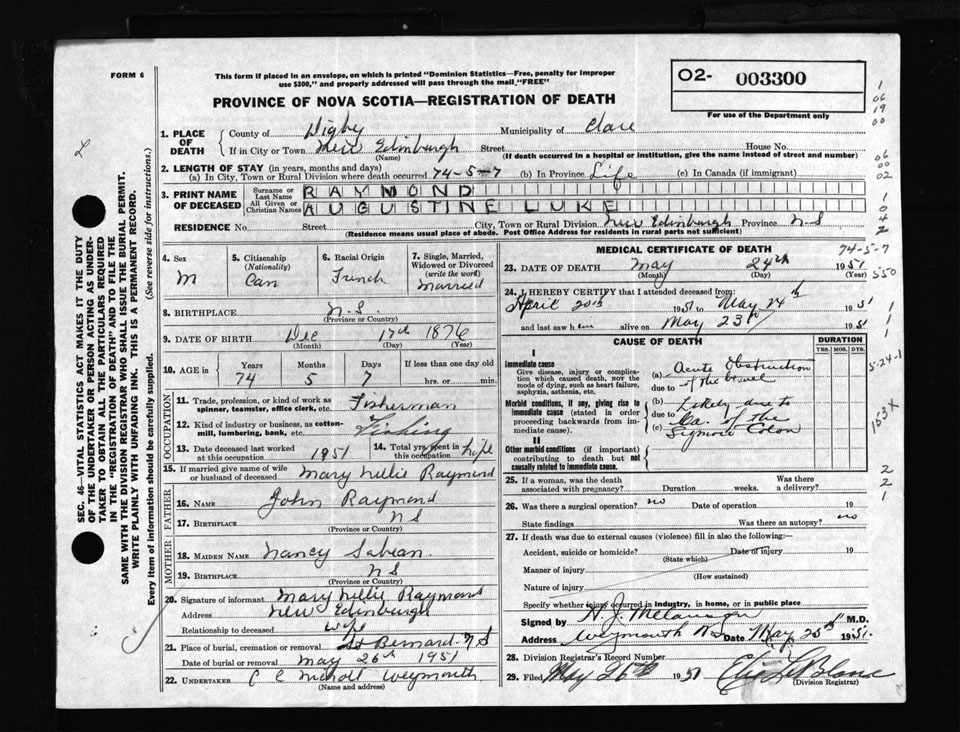 FORM 6
This form if placed in an envelope, on which is printed "Dominion Statistics—Free, penalty for improper
use $300," and properly addressed will pass through the mail "FREE"
PROVINCE OF NOVA SCOTIA—REGISTRATION OF DEATH
O2- 003300
For use of the Department only
1. PLACE OF DEATH
County of Digby Municipality of Clare
If in City or Town New Edinburgh Street House No.
(Name) (If death occurred in a hospital or institution, give the name instead of street and number)
2. LENGTH OF STAY (in years, months and days)
(a) In City, Town or Rural Division where death occurred 74-5-7 (b) In Province Life (c) In Canada (if immigrant)
3. PRINT NAME OF DECEASED
Surname or Last Name RAYMOND
All Given or Christian Names AUGUSTINE LUKE
RESIDENCE No. Street City, Town or Rural Division New Edinburgh Province N-S
(Residence means usual place of abode. Post Office Address for residents in rural parts not sufficient)
4. Sex M
5. Citizenship (Nationality) Can
6. Racial Origin French
7. Single, Married, Widowed or Divorced (write the word) Married
8. BIRTHPLACE N.S
(Province or Country)
9. DATE OF BIRTH Dec 17th 1876
(Month) (Day) (Year)
10. AGE in Years Months Days If less than one day old
74 5 7 hrs. or min.
OCCUPATION
11. Trade, profession, or kind of work as spinner, teamster, office clerk, etc. Fisherman
12. Kind of industry or business, as cotton-mill, lumbering, bank, etc. Fishing
13. Date deceased last worked at this occupation 1951
14. Total yrs. spent in this occupation Life
15. If married give name of wife or husband of deceased Mary Nellie Raymond
FATHER
16. NAME John Raymond
17. BIRTHPLACE N S
(Province or Country)
MOTHER
18. MAIDEN NAME Nancy Sabean
19. BIRTHPLACE N S
(Province or Country)
20. Signature of informant Mary Nellie Raymond
Address New Edinburgh
Relationship to deceased Wife
21. Place of burial, cremation or removal St Bernard-N S
Date of burial or removal May 26th 1951
22. UNDERTAKER C C Nicholl Weymouth
(Name and address)
MEDICAL CERTIFICATE OF DEATH
74-5-7
23. DATE OF DEATH May 24th 1951
(Month) (Day) (Year)
24. I HEREBY CERTIFY that I attended deceased from:
April 20th 1951 to May 24th 1951
and last saw him alive on May 23rd 1951
CAUSE OF DEATH
DURATION
YRS. MOS. DYS.
I
Immediate cause
Give disease, injury or complication which caused death, NOT the mode of dying, such as heart failure, asphyxia, asthenia, etc.
(a) Acute Obstruction
due to of the bowel
Morbid conditions, if any, giving rise to immediate cause (stated in order proceeding backwards from immediate cause).
(b) Likely due to
due to Ca. of the
(c) Sigmoid Colon
II
Other morbid conditions (if important) contributing to death but not causally related to immediate cause.
25. If a woman, was the death associated with pregnancy? Duration weeks. Was there a delivery?
26. Was there a surgical operation? no Date of operation 19
State findings Was there an autopsy? no
27. If death was due to external causes (violence) fill in also the following:—
Accident, suicide or homicide? Date of injury 19
(State which)
Manner of injury
(How sustained)
Nature of injury
Specify whether injury occurred in industry, in home, or in public place
Signed by H. J. Melanson M.D.
Address Weymouth N.S Date May 25th 1951
28. Division Registrar's Record Number
29. Filed May 26th 1951
(Division Registrar)
SEC. 46—VITAL STATISTICS ACT MAKES IT THE DUTY
OF THE UNDERTAKER OR PERSON ACTING AS UNDERTAKER TO OBTAIN ALL THE PARTICULARS REQUIRED
IN THE "REGISTRATION OF DEATH" AND TO FILE THE
SAME WITH THE DIVISION REGISTRAR WHO SHALL ISSUE THE BURIAL PERMIT.
WRITE PLAINLY WITH UNFADING INK. THIS IS A PERMANENT RECORD.
Every item of information should be carefully supplied. (See reverse side for instructions.)
1
06
19
00
06
00
02
1
0
4
2
550
1
1
1
5-24-1
153X
2
2
1